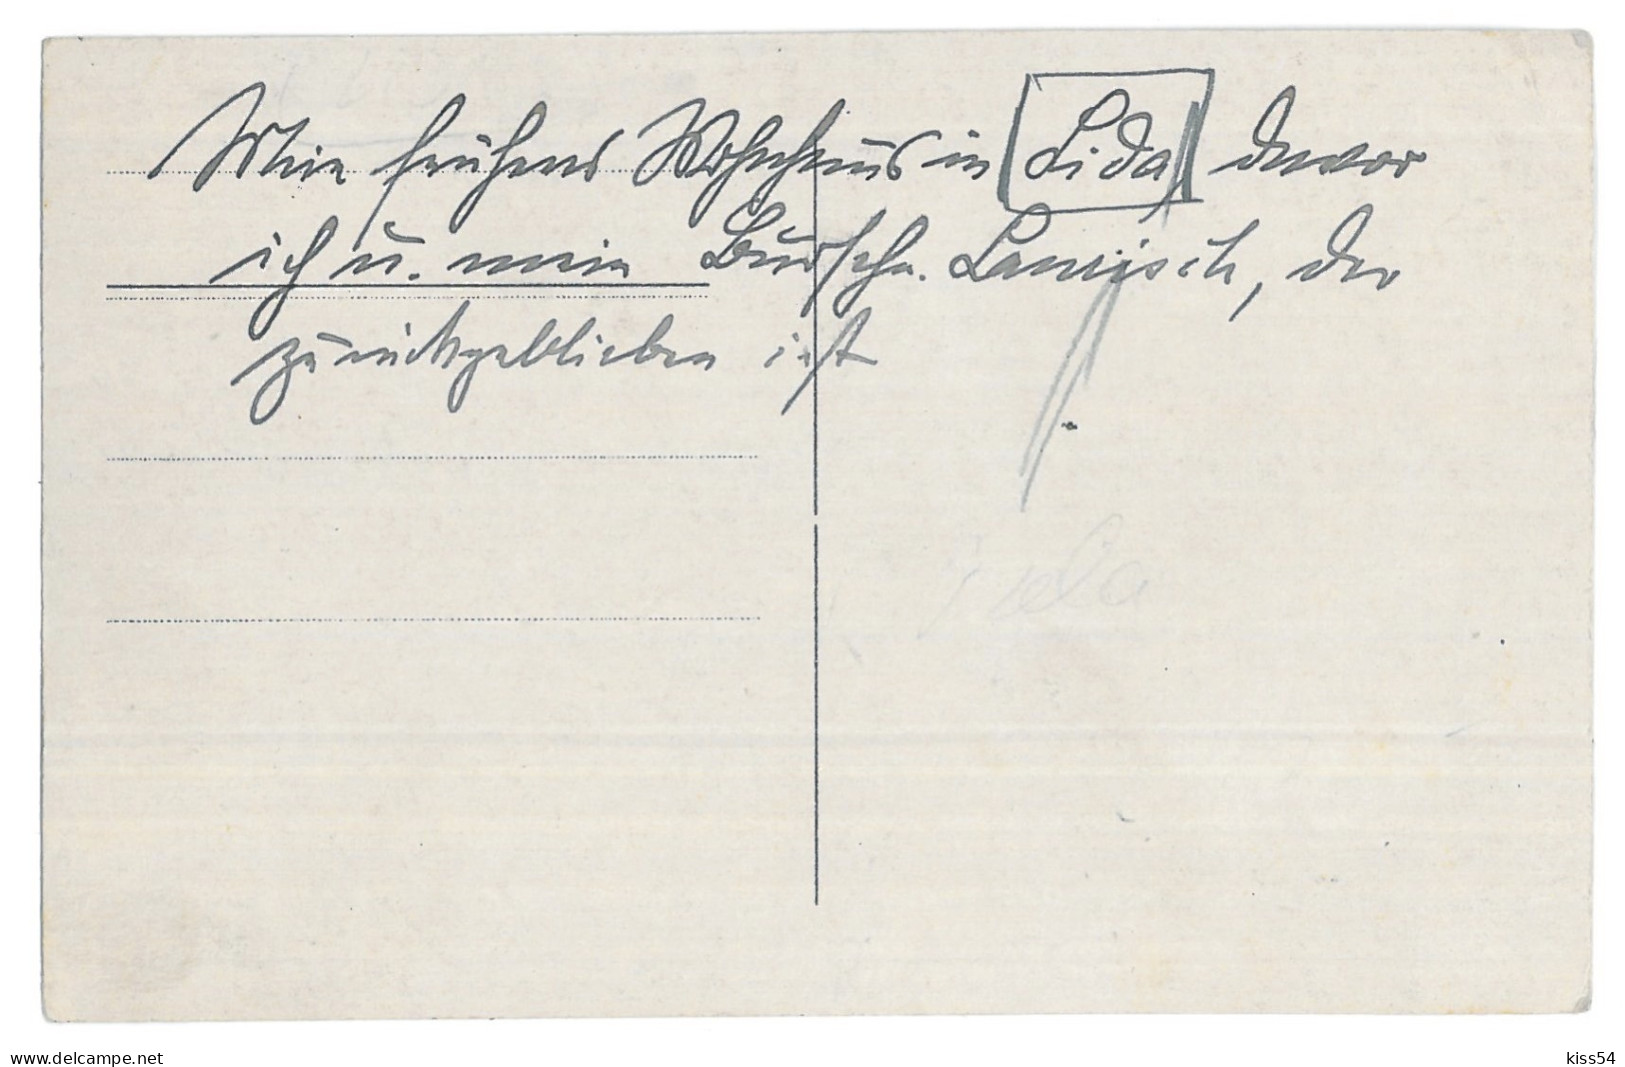 Mein früheres Wohnhaus in Lida davor
ich u. mein Bursche, der
zurückgeblieben ist
Lida
www.delcampe.net
kiss54